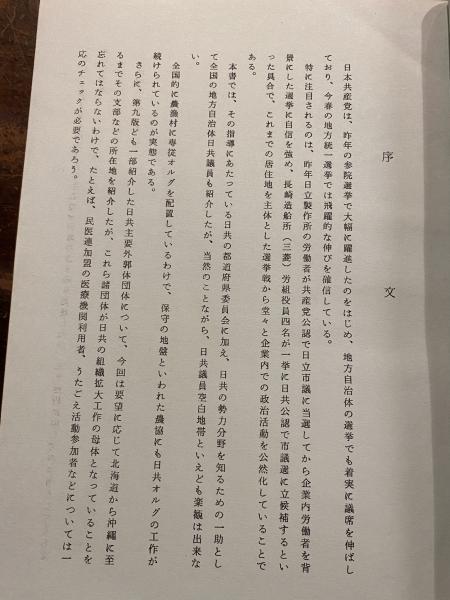 序文
日本共産党は、昨年の参院選挙で大幅に躍進したのをはじめ、地方自治体の選挙でも着実に議席を伸ばし
ており、今春の地方統一選挙では飛躍的な伸びを確信している。
特に注目されるのは、昨年日立製作所の労働者が共産党公認で日立市議に当選してから企業内労働者を背
景にした選挙に自信を強め、長崎造船所（三菱）労組役員四名が一挙に日共公認で市議選に立候補するとい
った具合で、これまでの居住地を主体とした選挙戦から堂々と企業内での政治活動を公然化していることで
ある。
本書では、その指導にあたっている日共の都道府県委員会に加え、日共の勢力分野を知るための一助とし
て全国の地方自治体日共議員も紹介したが、当然のことながら、日共議員空白地帯といえども楽観は出来な
い。
全国的に農漁村に専従オルグを配置しているわけで、保守の地盤といわれた農協にも日共オルグの工作が
続けられているのが実態である。
さらに、第九版でも一部紹介した日共主要外郭体団体について、今回は要望に応じて北海道から沖縄に至
るまでその支部などの所在地を紹介したが、これら諸団体が日共の組織拡大工作の母体となっていることを
忘れてはならないわけで、たとえば、民医連加盟の医療機関利用者、うたごえ活動参加者などについては一
応のチェックが必要であろう。